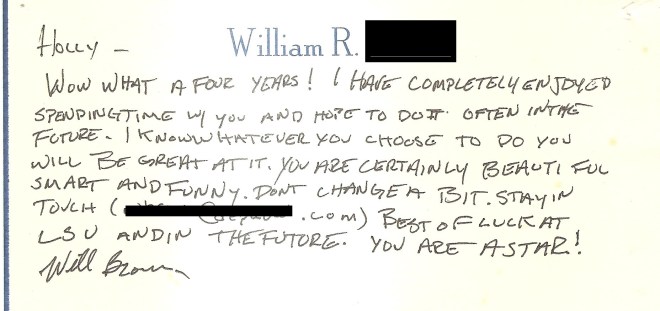 Holly – William R.
WOW WHAT A FOUR YEARS! I HAVE COMPLETELY ENJOYED
SPENDING TIME W/ YOU AND HOPE TO DO IT OFTEN IN THE
FUTURE. I KNOW WHATEVER YOU CHOOSE TO DO YOU
WILL BE GREAT AT IT. YOU ARE CERTAINLY BEAUTIFUL
SMART AND FUNNY. DONT CHANGE A BIT. STAY IN
TOUCH ( .com) BEST OF LUCK AT
LSU AND IN THE FUTURE. YOU ARE A STAR!
Will